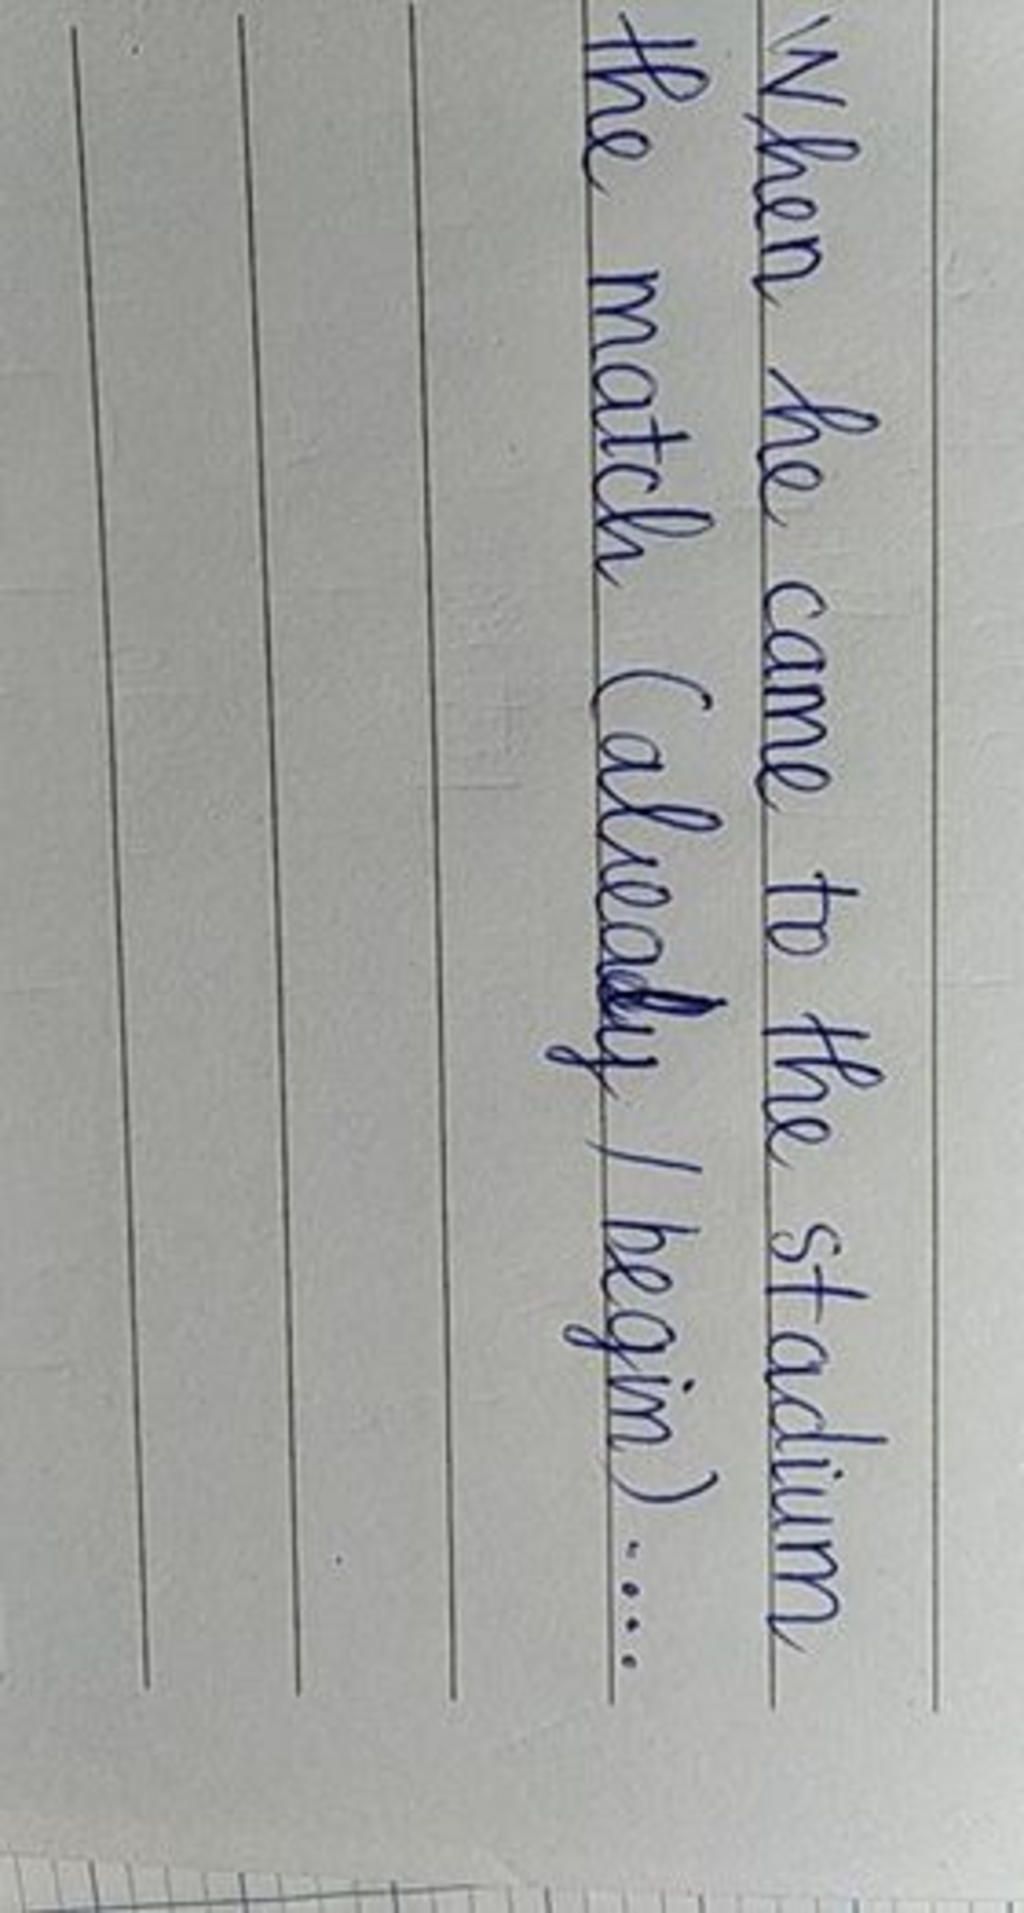 When he came to the stadium
the match (already / begin) ....